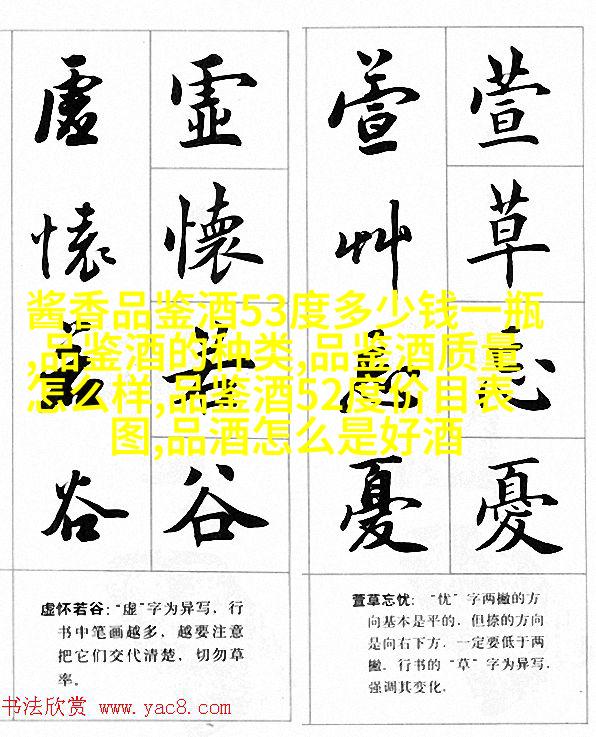 虚 虛 萱 萱
懷 懷 艸 草
若 若 忘 忘
谷 谷 憂 憂
酱香品鉴酒53度多少钱一瓶
,品鉴酒的种类,品鉴酒质量
怎么样,品鉴酒52度价目表
图,品酒怎么是好酒
虚怀若谷:“虚”字为异写，行
书中笔画越多，越要注意
把它们交代清楚，切勿草
率。
萱草忘忧:“忧”字两撇的方
向基本是平的，但捺的方向
是向右下方，一定要低于两
撇。行书的“草”字为异写，
强调其变化。
书法欣赏 www.yac8.com